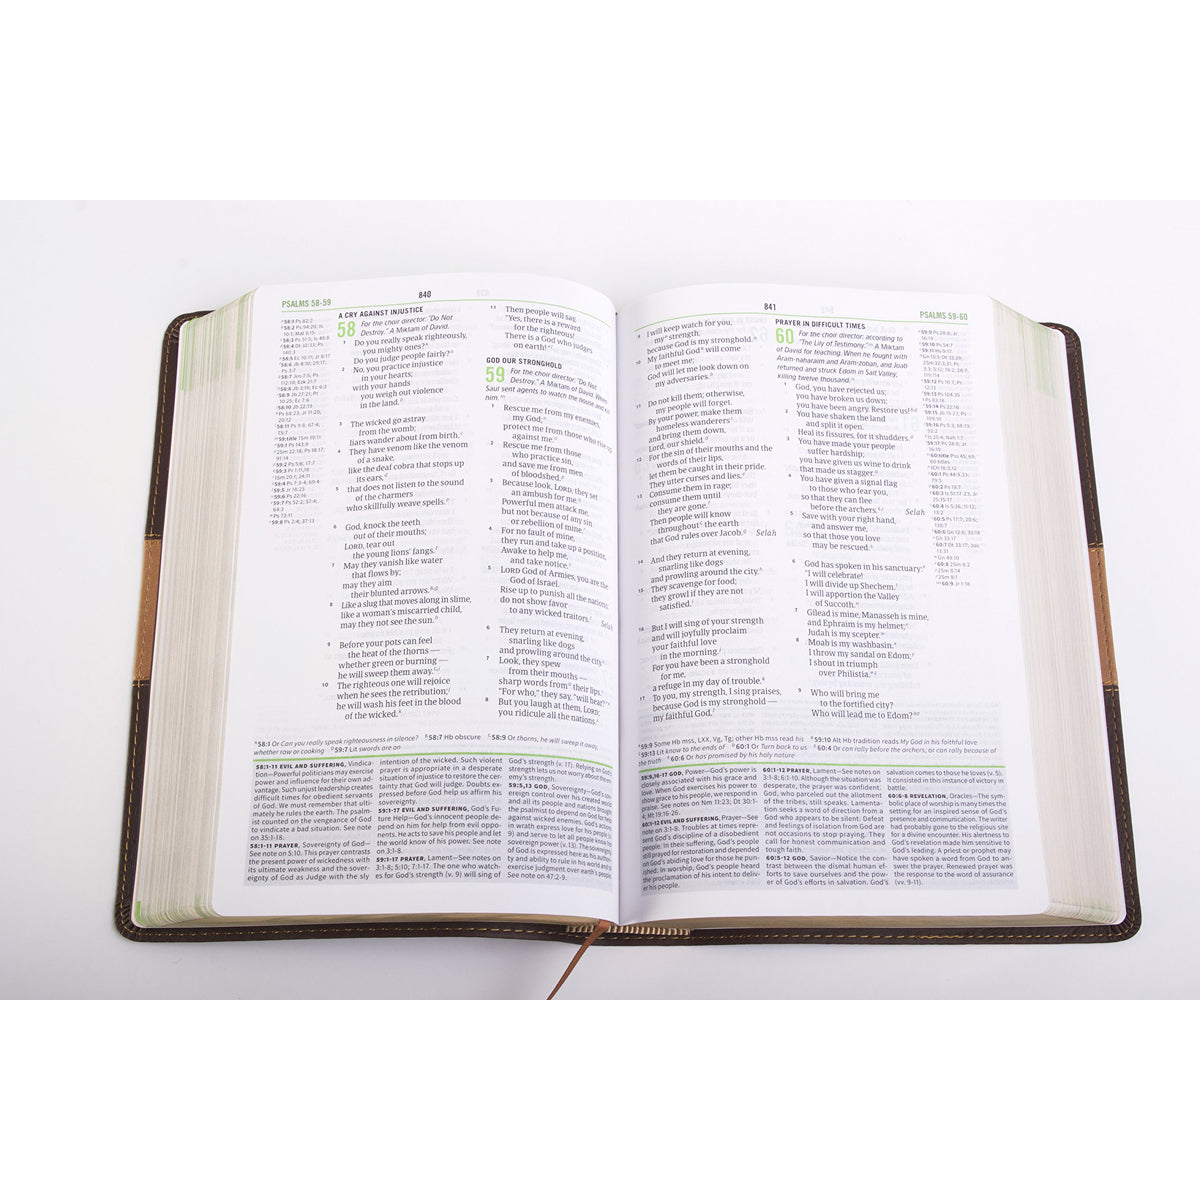 PSALMS 58-59
840
A CRY AGAINST INJUSTICE
58 For the choir director: "Do Not
Destroy." A Miktam of David.
1 Do you really speak righteously,
you mighty ones?
Do you judge people fairly?
2 No, you practice injustice
in your hearts;
with your hands
you weigh out violence
in the land.
3 The wicked go astray
from the womb;
liars wander about from birth.
4 They have venom like the venom
of a snake,
like the deaf cobra that stops up
its ears,
5 that does not listen to the sound
of the charmers
who skillfully weave spells.
6 God, knock the teeth
out of their mouths;
LORD, tear out
the young lions' fangs.
7 May they vanish like water
that flows by;
may they aim
their blunted arrows.
8 Like a slug that moves along in slime,
like a woman's miscarried child,
may they not see the sun.
9 Before your pots can feel
the heat of the thorns —
whether green or burning —
he will sweep them away.
10 The righteous one will rejoice
when he sees the retribution;
he will wash his feet in the blood
of the wicked.
11 Then people will say,
"Yes, there is a reward
for the righteous!
There is a God who judges
on earth!"
GOD OUR STRONGHOLD
59 For the choir director: "Do Not
Destroy." A Miktam of David. When
Saul sent agents to watch the house and kill
him.
1 Rescue me from my enemies,
my God;
protect me from those who rise up
against me.
2 Rescue me from those
who practice sin,
and save me from men
of bloodshed.
3 Because look, LORD, they set
an ambush for me.
Powerful men attack me,
but not because of any sin
or rebellion of mine.
4 For no fault of mine,
they run and take up a position.
Awake to help me,
and take notice.
5 LORD God of Armies, you are the
God of Israel.
Rise up to punish all the nations;
do not show favor
to any wicked traitors. Selah
6 They return at evening,
snarling like dogs
and prowling around the city.
7 Look, they spew
from their mouths —
sharp words from their lips.
"For who," they say, "will hear?"
8 But you laugh at them, LORD;
you ridicule all the nations.
58:1 Or Can you really speak righteousness in silence? 58:7 Hb obscure 58:9 Or thorns, he will sweep it away,
whether raw or cooking 59:7 Lit swords are on
58:1-11 EVIL AND SUFFERING, Vindica-
tion—Powerful politicians may exercise
power and influence for their own ad-
vantage. Such unjust leadership creates
difficult times for obedient servants
of God. We must remember that ulti-
mately he rules the earth. The psalm-
ist counted on the vengeance of God
to vindicate a bad situation. See note
on 35:1-18.
58:1-11 PRAYER, Sovereignty of God—
See note on 5:10. This prayer contrasts
the present power of wickedness with
its ultimate weakness and the sover-
eignty of God as Judge with the sly
intention of the wicked. Such violent
prayer is appropriate in a desperate
situation of injustice to restore the cer-
tainty that God will judge. Doubts ex-
pressed before God help us affirm his
sovereignty.
59:1-17 EVIL AND SUFFERING, God's Fu-
ture Help—God's innocent people de-
pend on him for help from evil oppo-
nents. He acts to save his people and let
the world know of his power. See note
on 3:1-8.
59:1-17 PRAYER, Lament—See notes on
3:1-8; 5:10; 7:1-17. The one who watch-
es for God's strength (v. 9) will sing of
God's strength (v. 17). Relying on God's
strength lets us not worry about the en-
emy's strength.
59:5,13 GOD, Sovereignty—God's sov-
ereign control over his created world
and all its people and nations brought
the psalmist to depend on God for help
against wicked enemies. God's actions
in wrath express love for his people (v.
9) and serve to let all people know his
sovereign power (v. 13). The sovereignty
of God is expressed here as his author-
ity and ability to rule in his world and to
exercise judgment over earth's people.
See note on 47:2-9.
841
PSALMS 59-60
9 I will keep watch for you,
my strength,
because God is my stronghold.
10 My faithful God will come
to meet me;
God will let me look down on
my adversaries.
11 Do not kill them; otherwise,
my people will forget.
By your power, make them
homeless wanderers
and bring them down,
Lord, our shield.
12 For the sin of their mouths and the
words of their lips,
let them be caught in their pride.
They utter curses and lies.
13 Consume them in rage;
consume them until
they are gone.
Then people will know
throughout the earth
that God rules over Jacob. Selah
14 And they return at evening,
snarling like dogs
and prowling around the city.
15 They scavenge for food;
they growl if they are not
satisfied.
16 But I will sing of your strength
and will joyfully proclaim
your faithful love
in the morning.
For you have been a stronghold
for me,
a refuge in my day of trouble.
17 To you, my strength, I sing praises,
because God is my stronghold —
my faithful God.
PRAYER IN DIFFICULT TIMES
60 For the choir director: according to
"The Lily of Testimony." A Miktam
of David for teaching. When he fought with
Aram-naharaim and Aram-zobah, and Joab
returned and struck Edom in Salt Valley,
killing twelve thousand.
1 God, you have rejected us;
you have broken us down;
you have been angry. Restore us!
2 You have shaken the land
and split it open.
Heal its fissures, for it shudders.
3 You have made your people
suffer hardship;
you have given us wine to drink
that made us stagger.
4 You have given a signal flag
to those who fear you,
so that they can flee
before the archers. Selah
5 Save with your right hand,
and answer me,
so that those you love
may be rescued.
6 God has spoken in his sanctuary:
"I will celebrate!
I will divide up Shechem.
I will apportion the Valley
of Succoth.
7 Gilead is mine, Manasseh is mine,
and Ephraim is my helmet;
Judah is my scepter.
8 Moab is my washbasin.
I throw my sandal on Edom;
I shout in triumph
over Philistia."
9 Who will bring me
to the fortified city?
Who will lead me to Edom?
59:9 Some Hb mss, LXX, Vg, Tg; other Hb mss read his 59:10 Alt Hb tradition reads My God in his faithful love
59:13 Lit know to the ends of 60:1 Or Turn back to us 60:4 Or can rally before the archers, or can rally because of
the truth 60:6 Or has promised by his holy nature
59:9,16-17 GOD, Power—God's power is
closely associated with his grace and
love. When God exercises his power to
show grace to people, we respond in
praise. See notes on Nm 11:23; Dt 30:1-
4; Mt 19:16-26.
60:1-12 EVIL AND SUFFERING, Prayer—See
note on 3:1-8. Troubles at times repre-
sent God's discipline of a disobedient
people. In their suffering, God's people
still prayed for restoration and depended
on God's abiding love for those he pun-
ished. In worship, God's people heard
the proclamation of his intent to deliv-
er his people.
60:1-12 PRAYER, Lament—See notes on
3:1-8; 6:1-10. Although the situation was
desperate, the prayer was confident.
God, who parceled out the allotment
of the tribes, still speaks. Lamenta-
tion seeks a word of direction from a
God who appears to be silent. Defeat
and feelings of isolation from God are
not occasions to stop praying. They
call for honest communication and
tough faith.
60:5-12 GOD, Savior—Notice the con-
trast between the dismal human ef-
forts to save ourselves and the pow-
er of God's efforts in salvation. God's
salvation comes to those he loves (v. 5).
It consisted in this instance of victory in
battle.
60:6-8 REVELATION, Oracles—The sym-
bolic place of worship is many times the
setting for an inspired sense of God's
presence and communication. The writer
had probably gone to the religious site
for a divine encounter. His alertness to
God's revelation made him sensitive to
God's leading. A priest or prophet may
have spoken a word from God to an-
swer the prayer. Renewed prayer was
the response to the word of assurance
(vv. 9-11).